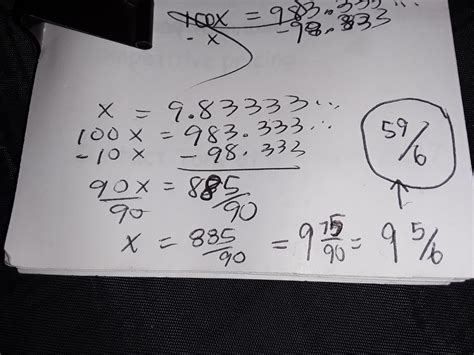 100x = 983.333...
- x - 98.333
x = 9.83333...
100x = 983.333...
-10x - 98.333
90x/90 = 885/90
x = 885/90 = 9 75/90 = 9 5/6
59/6